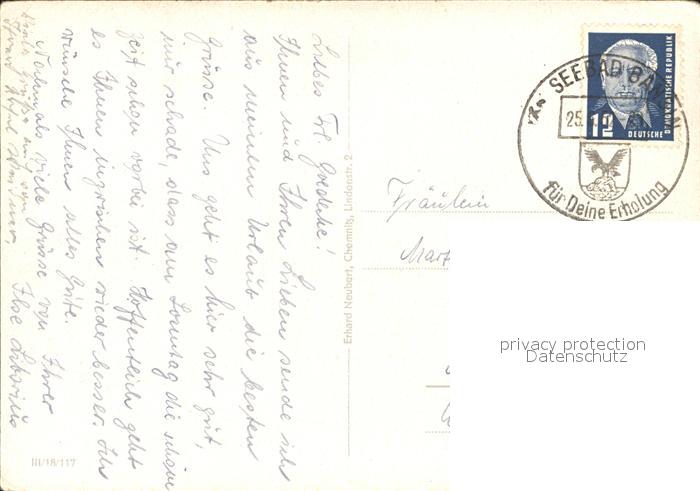 Liebes Frl. Goedecke!
Ihnen und Ihren Lieben sende ich
aus meinem Urlaub die besten
Grüsse. Uns geht es hier sehr gut,
nur schade, dass am Sonntag die schöne
Zeit schon vorbei ist. Hoffentlich geht
es Ihnen inzwischen wieder besser. Ich
wünsche Ihnen alles Gute.
Nochmals viele Grüsse von Ihrer
Ilse
viele Grüsse auch von
III/18/117
Erhard Neubert, Chemnitz, Lindenstr. 2
Fräulein
Mart
SEEBAD BANSIN
25.
für Deine Erholung
12
DEUTSCHE
DEMOKRATISCHE REPUBLIK
privacy protection
Datenschutz